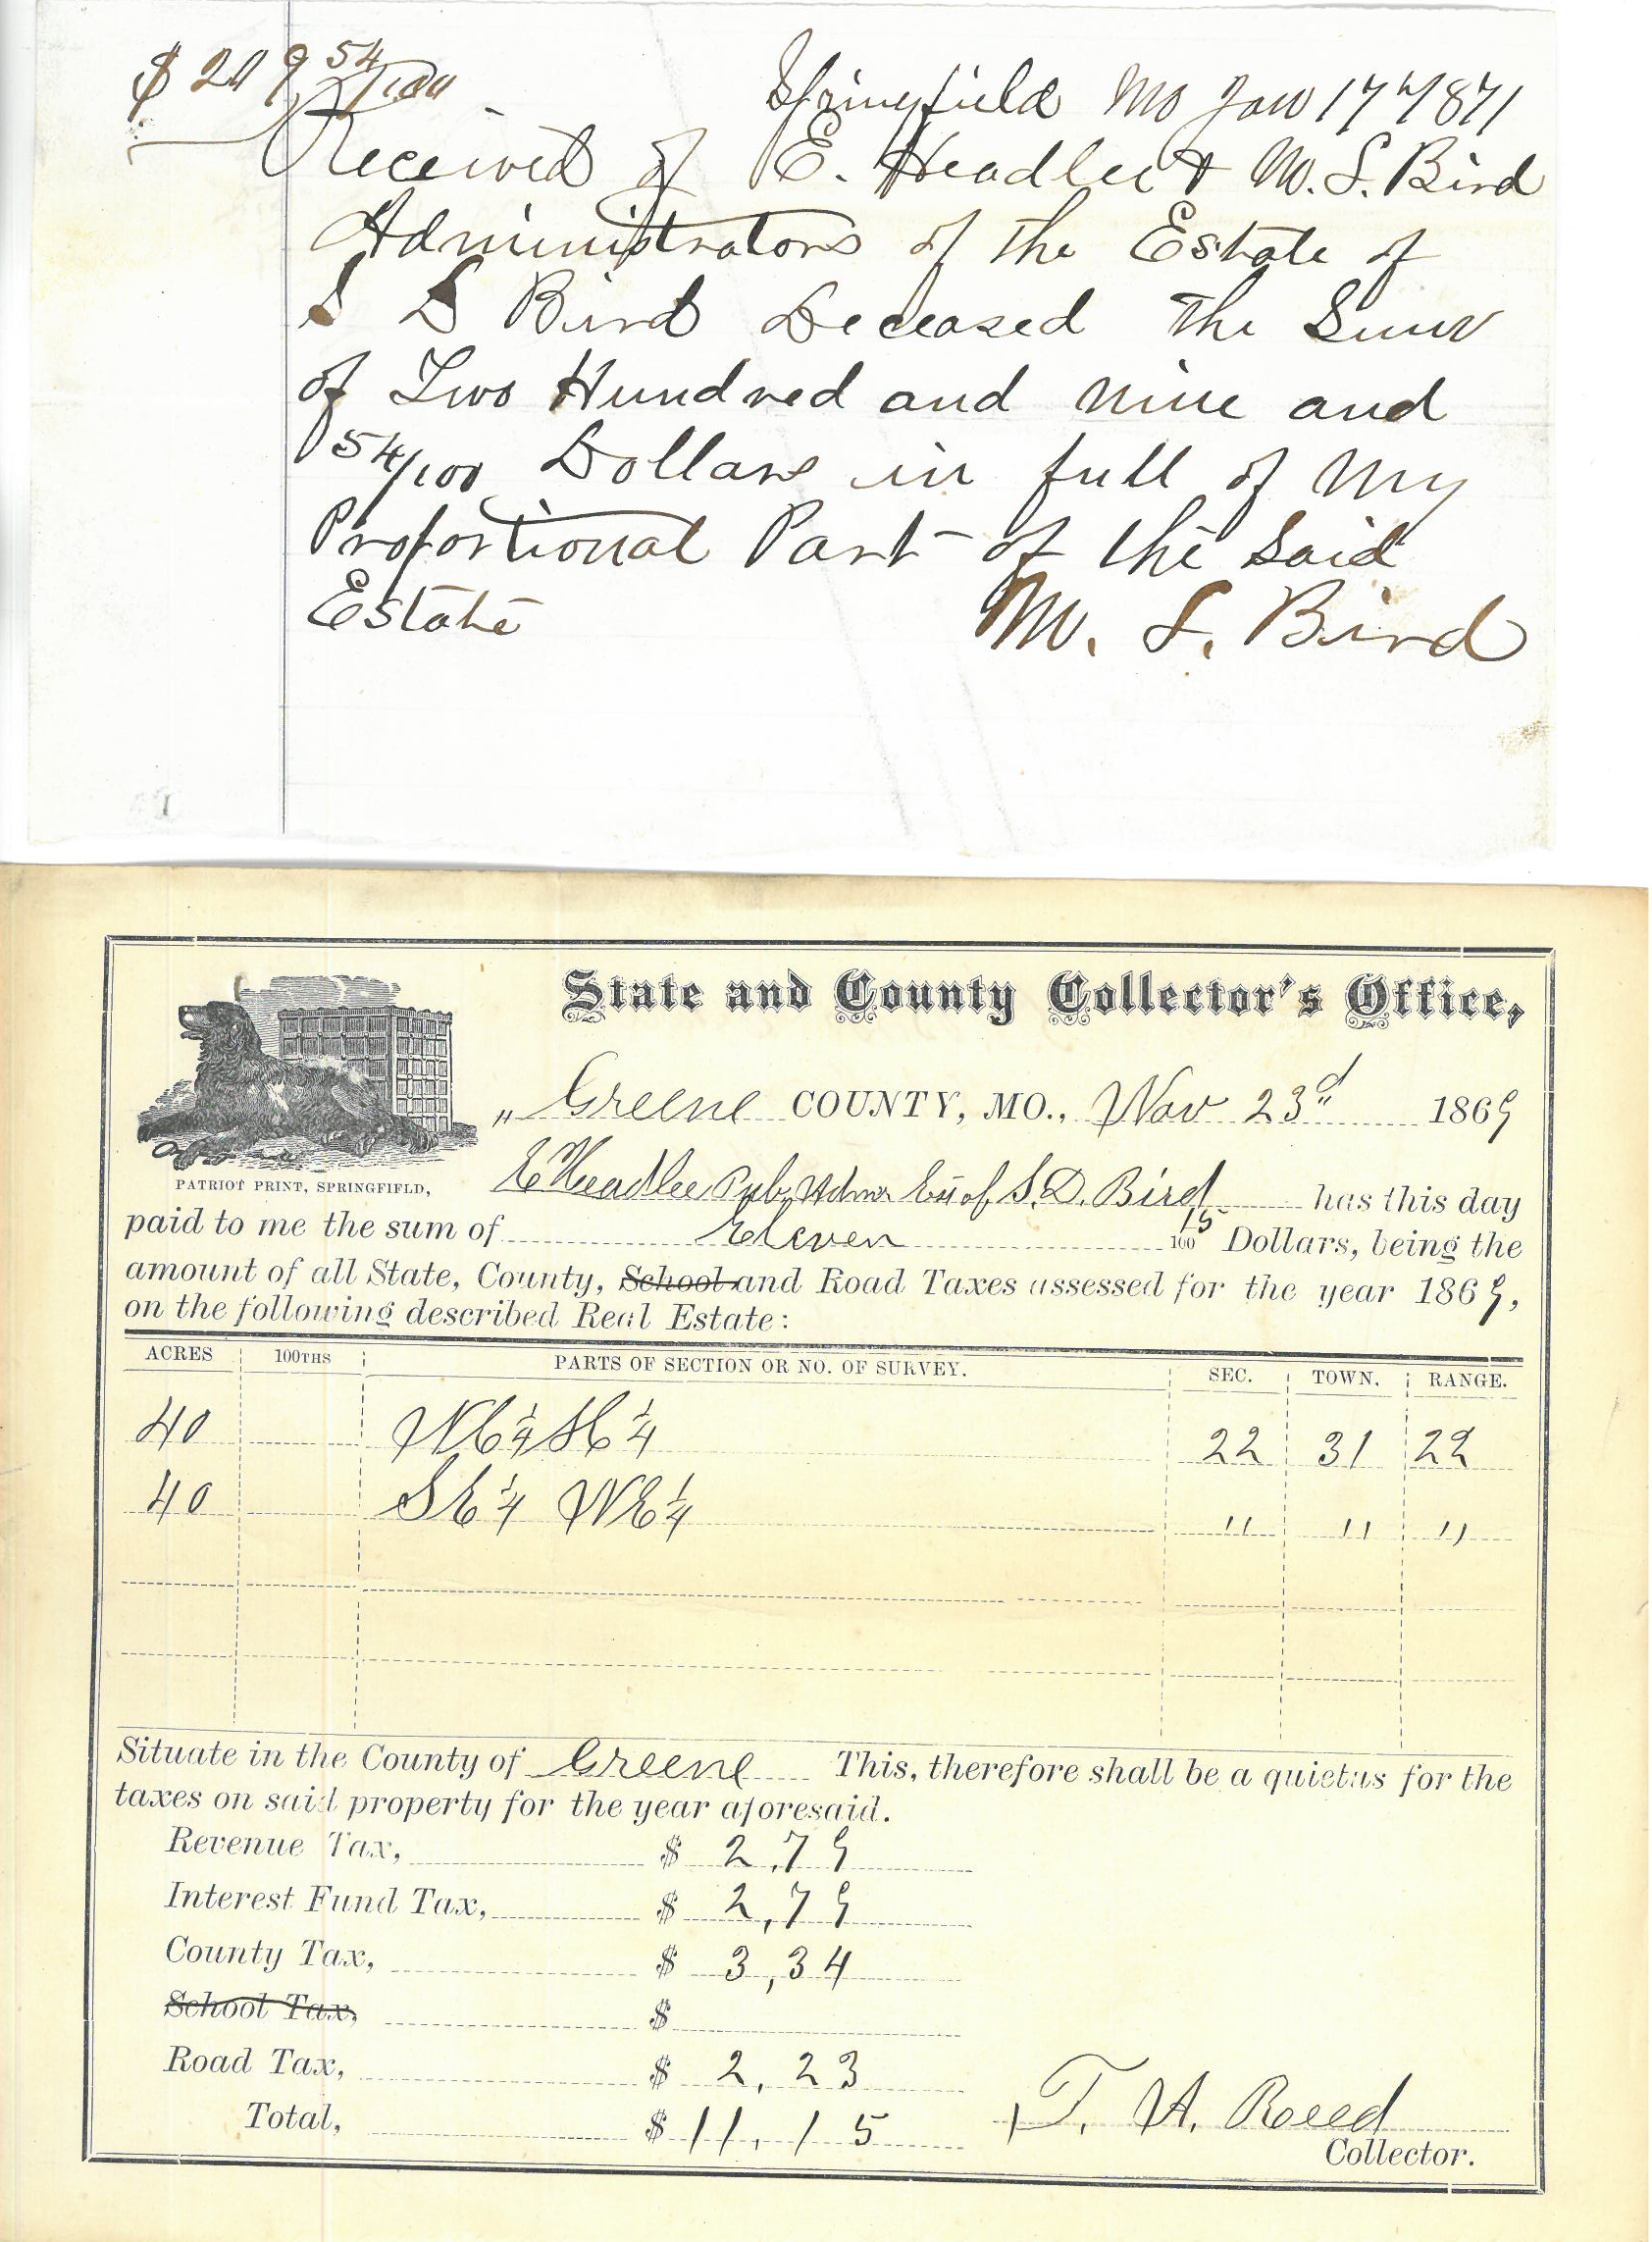 $ 209 54/100
Springfield Mo Jan 17th 1871
Received of E. Headlee & M. S. Bird
Administrators of the Estate of
S D Bird Deceased the Sum
of Two Hundred and nine and
54/100 Dollars in full of My
Proportional Part of the Said
Estate
M. S. Bird
State and County Collector's Office,
" Greene COUNTY, MO., Nov 23d 1869
PATRIOT PRINT, SPRINGFIELD,
E Headlee Pub. Admr Est of S. D. Bird has this day
paid to me the sum of Eleven 15/100 Dollars, being the
amount of all State, County, School and Road Taxes assessed for the year 1869,
on the following described Real Estate:
ACRES 100THS PARTS OF SECTION OR NO. OF SURVEY. SEC. TOWN. RANGE.
40 NE 1/4 SE 1/4 22 31 22
40 SE 1/4 NE 1/4 " " "
Situate in the County of Greene This, therefore shall be a quietus for the
taxes on said property for the year aforesaid.
Revenue Tax, $ 2,79
Interest Fund Tax, $ 2,79
County Tax, $ 3,34
School Tax, $
Road Tax, $ 2,23
Total, $ 11,15
T. A. Reed
Collector.